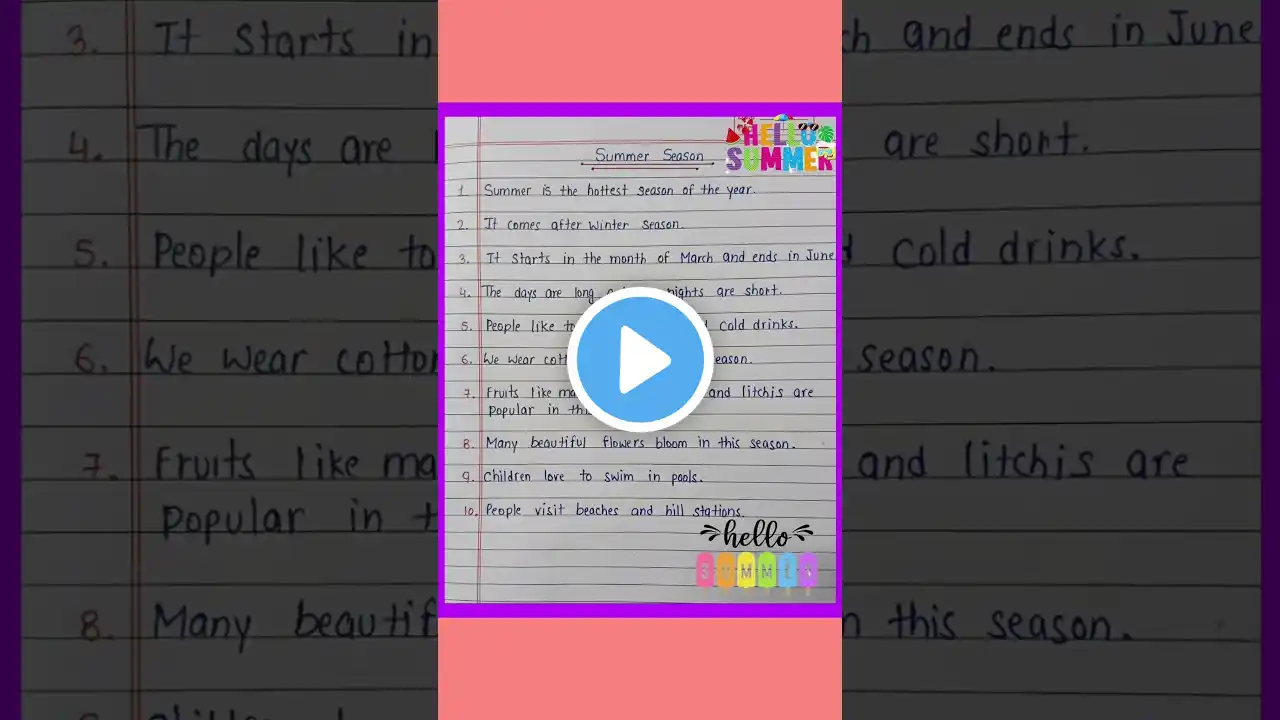 HELLO
SUMMER
Summer Season
1. Summer is the hottest season of the year.
2. It comes after winter season.
3. It starts in the month of March and ends in June
4. The days are long nights are short.
5. People like to cold drinks.
6. We wear season.
7. Fruits like and litchis are
popular in
8. Many beautiful flowers bloom in this season.
9. Children love to swim in pools.
10. People visit beaches and hill stations.
hello
SUMMER